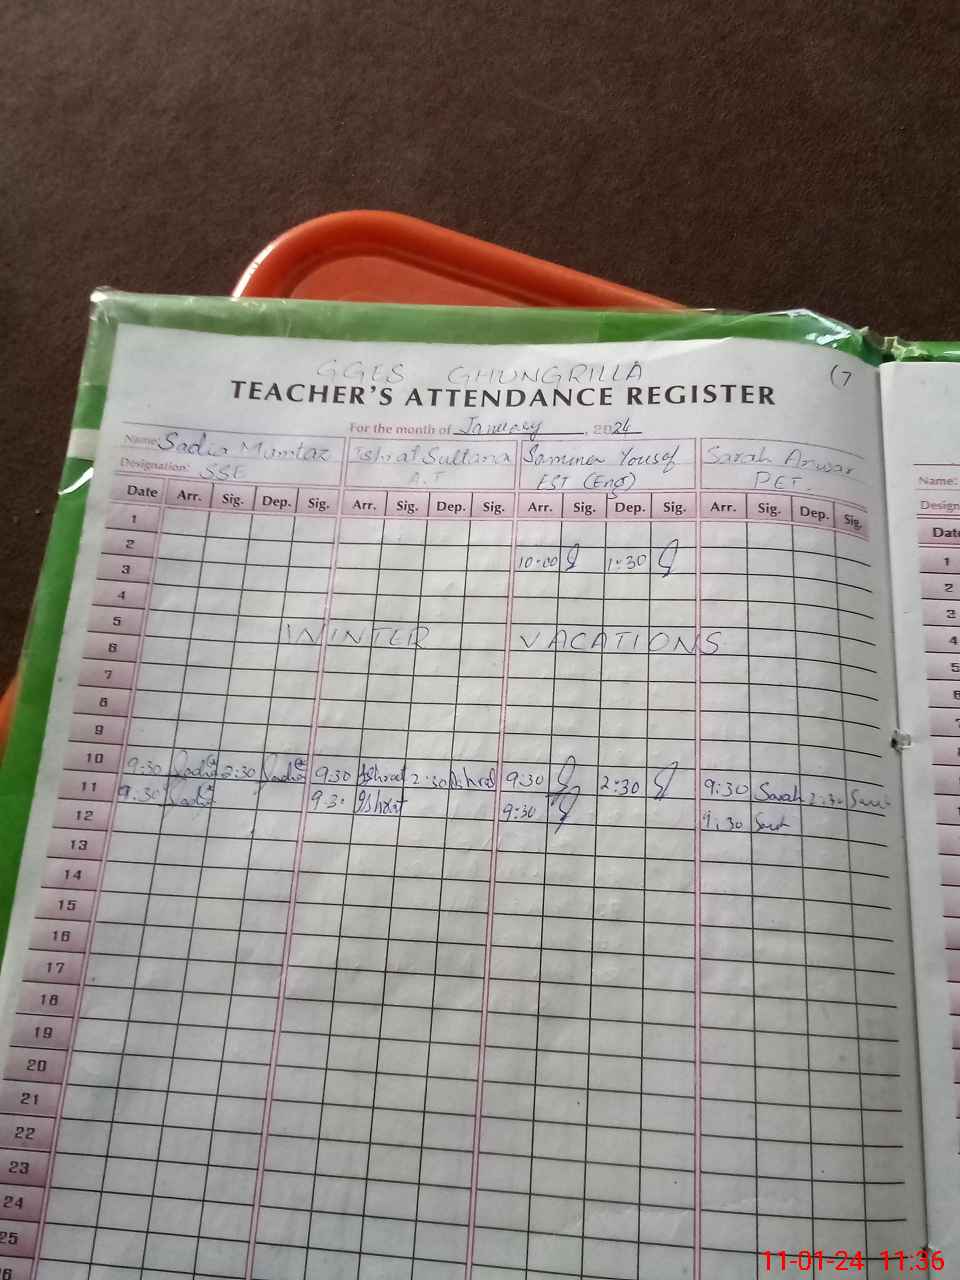 GGES GHUNGRILLA
(7
TEACHER'S ATTENDANCE REGISTER
For the month of January, 2024
Name: Sadia Mumtaz Ishrat Sultana Samina Yousaf Sarah Anwar
Designation: SSE A.T EST (Eng) PET.
Date Arr. Sig. Dep. Sig. Arr. Sig. Dep. Sig. Arr. Sig. Dep. Sig. Arr. Sig. Dep. Sig.
1
2
3 10:00 1:30
4
5
6 WINTER VACATIONS
7
8
9
10 9:30 Sadia 2:30 Sadia 9:30 Ishrat 2:30 Ishrat 9:30 2:30 9:30 Sarah 2:30 Sarah
11 9:30 Sadia 9:30 Ishrat 9:30 9:30 Sarah
12
13
14
15
16
17
18
19
20
21
22
23
24
25
Name:
Design
Date
1
2
3
4
5
6
7
11-01-24 11:36